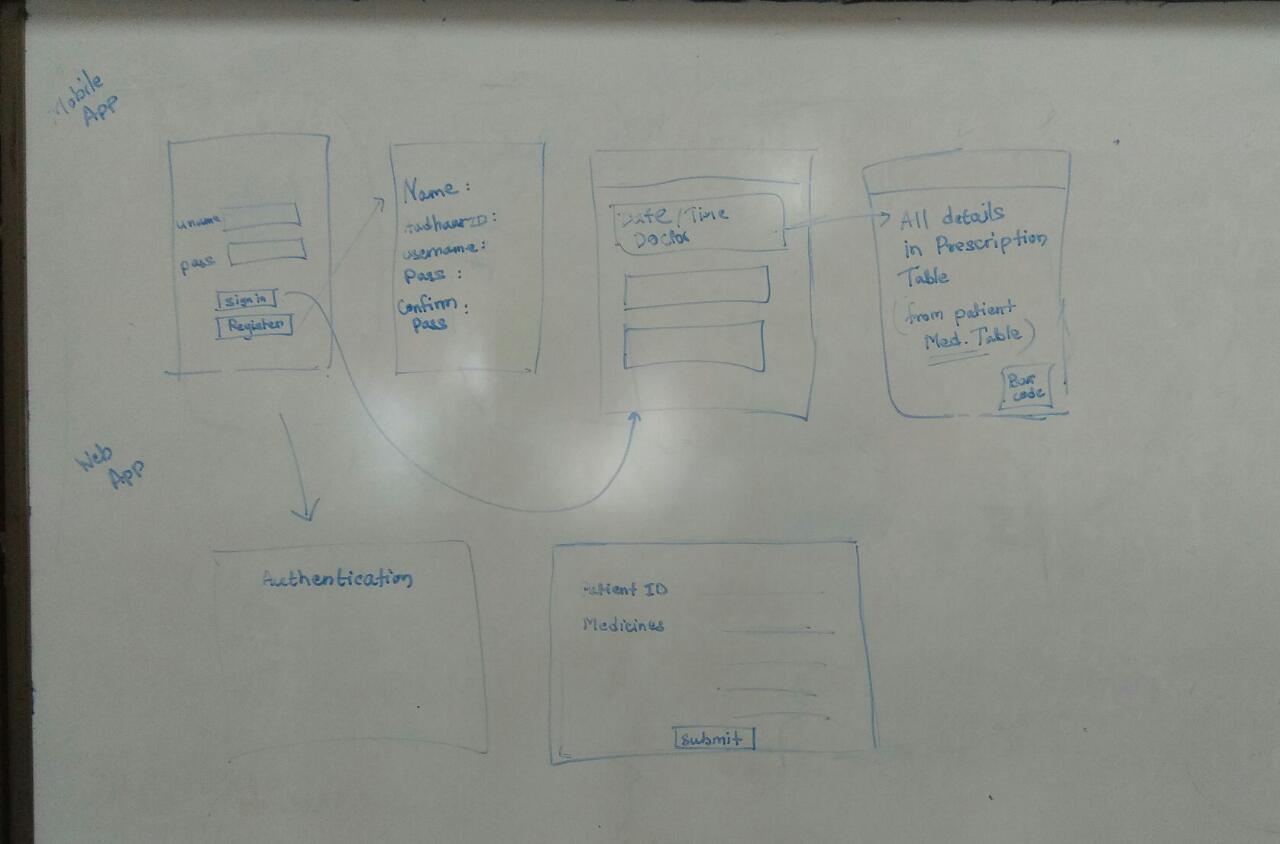 Mobile
App
uname
pass
Sign in
Register
Name :
AadhaarID :
username :
Pass :
Confirm :
Pass
Date/Time
Doctor
All details
in Prescription
Table
(from patient
Med. Table)
Bar
code
Web
App
Authentication
Patient ID
Medicines
Submit